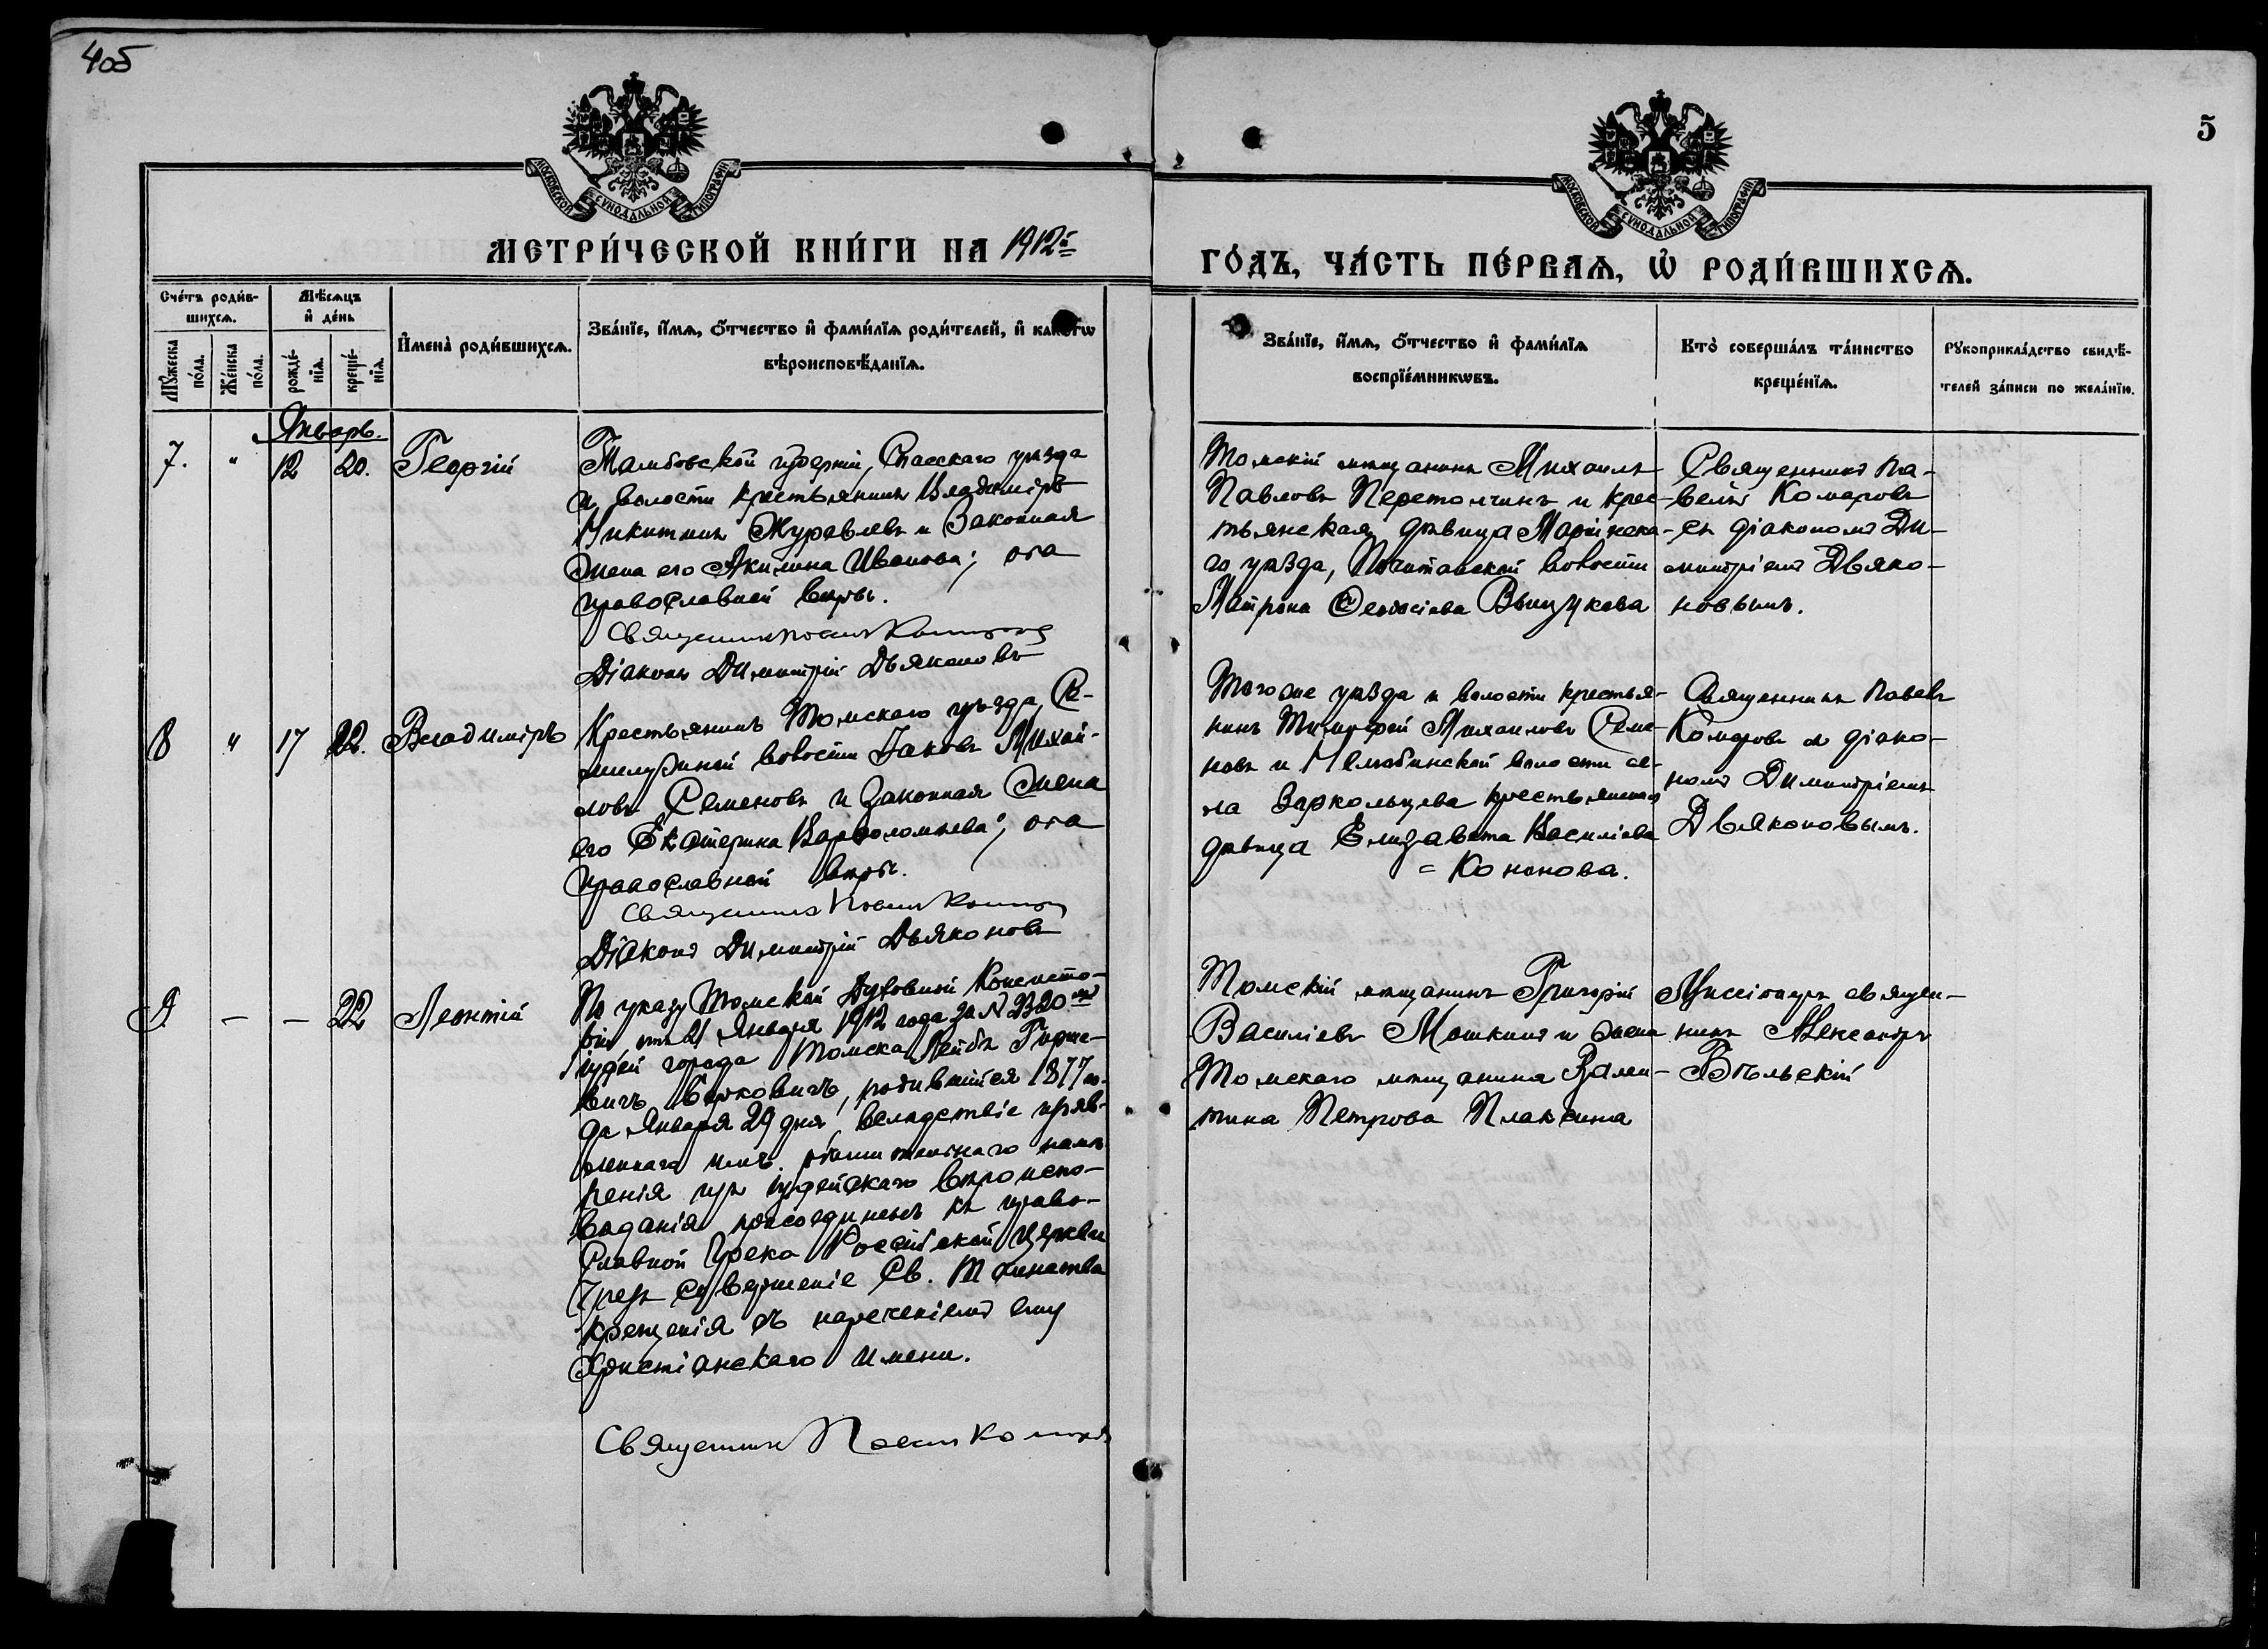 4об
5
МОСКОВСКОЙ СѴНОДАЛЬНОЙ ТИПОГРАФІИ
МОСКОВСКОЙ СѴНОДАЛЬНОЙ ТИПОГРАФІИ
МЕТРИ́ЧЕСКОЙ КНИ́ГИ НА 1912й
ГО́ДЪ, ЧА́СТЬ ПЕ́РВАѦ, Ѿ РОДИ́ВШИХСѦ.
Сче́тъ роди́в-
шихсѧ.
Мѣ́сѧцъ
и҆ де́нь
Мꙋ́жеска
по́ла.
Же́нска
по́ла.
рожде́-
нїѧ.
креще́-
нїѧ.
И҆мена̀ роди́вшихсѧ.
Зва́нїе, и҆́мѧ, ѻ҆́тчество и҆ фами́лїѧ роди́телей, и҆ како́гѡ
вѣроисповѣ́данїѧ.
Зва́нїе, и҆́мѧ, ѻ҆́тчество и҆ фами́лїѧ
воспрїе́мникѡвъ.
Кто̀ соверша́лъ та́инство
креще́нїѧ.
Рꙋкоприкла́дство свидѣ́-
телей за́писи по жела́нїю.
Январь.
7. " 12 20. Георгій
Тамбовской губерніи, Спасскаго уѣзда
и волости крестьянинъ Владиміръ
Никитинъ Журавлевъ и законная
жена его Акилина Иванова; оба
православной вѣры.
Священникъ Павелъ Комаровъ
Діаконъ Димитрій Дьяконовъ
Томскій мѣщанинъ Михаилъ
Павловъ Перетолчинъ и крес-
тьянская дѣвица Маріинска-
го уѣзда, Почитанской волости
Матрона Феодосіева
Священникъ Па-
велъ Комаровъ
съ діакономъ Ди-
митріемъ Дьяко-
новымъ.
8 " 17 22. Владиміръ
Крестьянинъ Томскаго уѣзда, Се-
милужной волости Іаковъ Михай-
ловъ Семеновъ и законная жена
его Екатерина Варѳоломѣева; оба
православной вѣры.
Священникъ Павелъ Комаровъ
Діаконъ Димитрій Дьяконовъ
Того же уѣзда и волости крестья-
нинъ Тимофей Михаиловъ Семе-
новъ и Нелюбинской волости се-
ла крестьянская
дѣвица Елизавета Василіева
= Кононова.
Священникъ Павелъ
Комаровъ съ діако-
номъ Димитріемъ
Дьяконовымъ.
9. — — 22 Леонтій
По указу Томской Духовной Консисто-
ріи отъ 21 Января 1912 года за № 2320мъ
іудей города Томска Лейба Гирше-
вичъ Берковичъ, родившійся 1877 го-
да Января 29 дня, вслѣдствіе прояв-
леннаго имъ рѣшительнаго намѣ-
ренія изъ іудейскаго вѣроиспо-
вѣданія присоединенъ къ право-
славной Греко Россійской церкви
чрезъ совершеніе Св. Таинства
крещенія съ нареченіемъ ему
христіанскаго имени.
Священникъ Павелъ Комаровъ
Томскій мѣщанинъ Григорій
Василіевъ Мошкинъ и жена
Томскаго мѣщанина Вален-
тина Петрова Плаксина
Миссіонеръ священ-
никъ Александръ
Бѣльскій